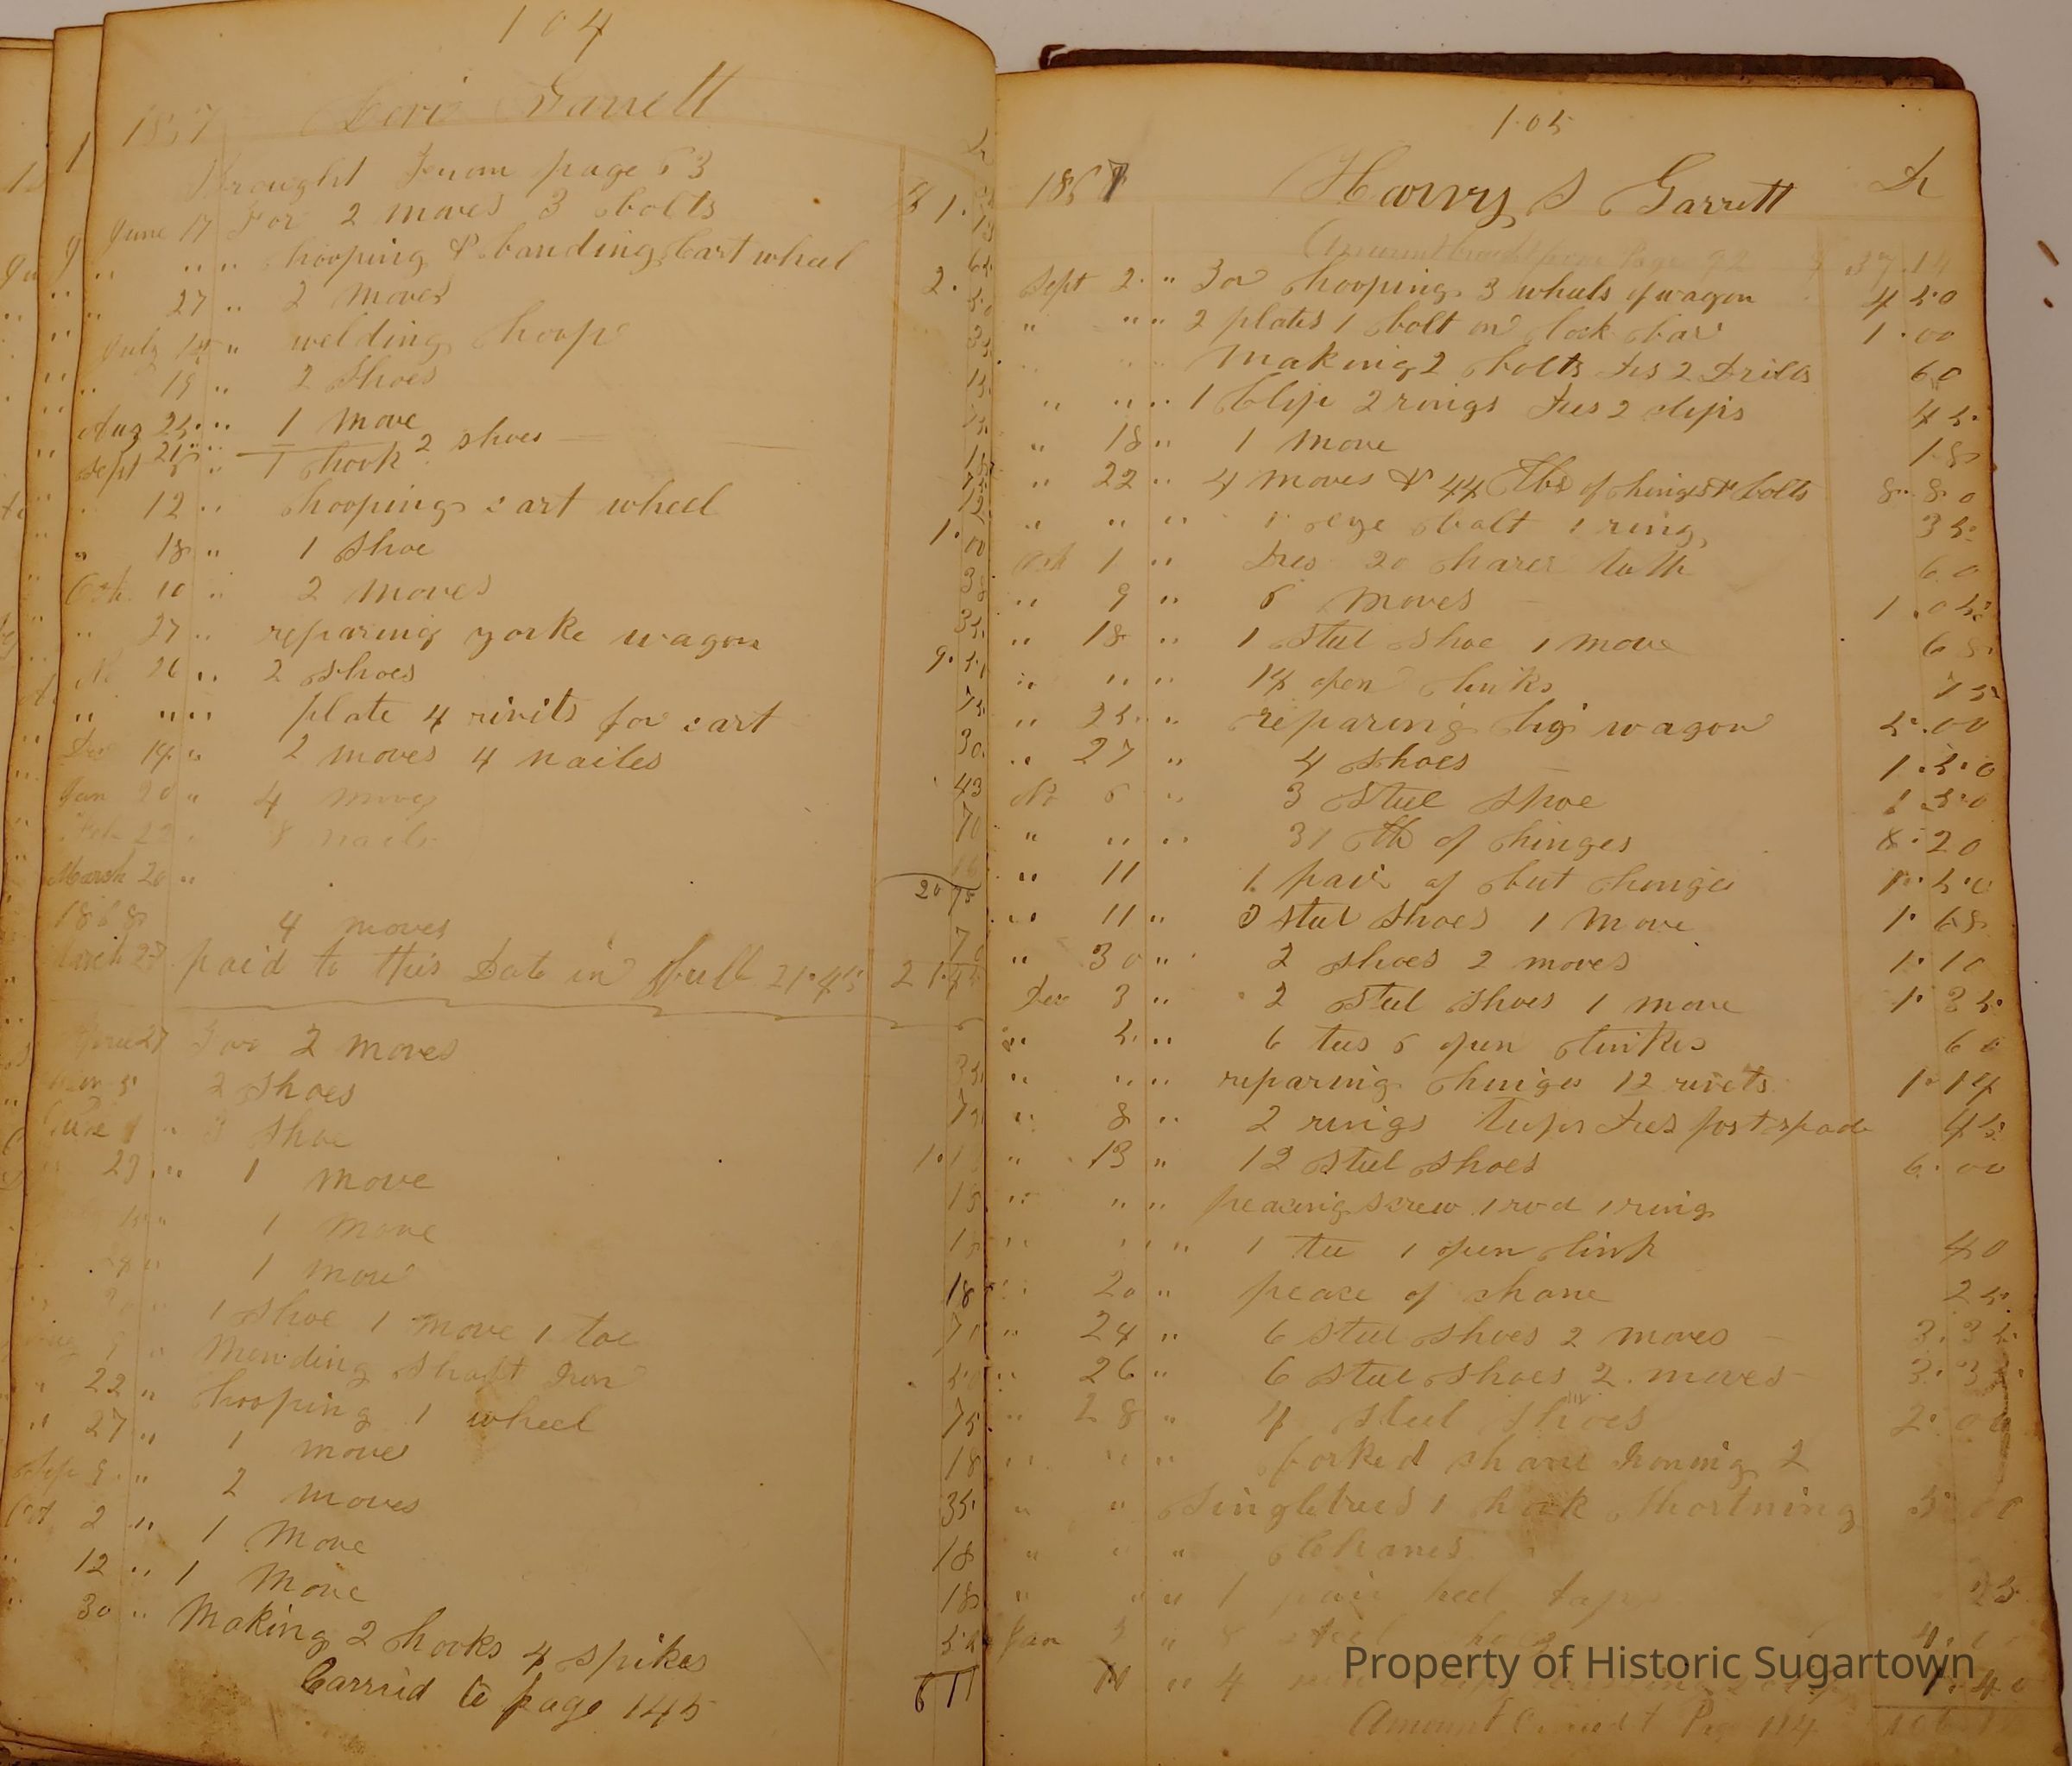 104
1857 Garrett
Brought from page 63
June 17 For 2 moves 3 bolts
" " " hooping & banding Cart wheel 2.
" 27 " 2 moves
July 14 " welding hoop
" 19 " 2 shoes
Aug 25 " 1 move
21 " 2 shoes
Sept 5 " 1 hook
" 12 " hooping cart wheel 1.
" 18 " 1 shoe
Oct 10 " 2 moves
" 27 " reparing yorke wagon 9.
26 " 2 shoes 75
" " " plate 4 rivits for cart 30
Dec 14 " 2 moves 4 nailes 43
Jan 20 " 4 moves 70
Feb 22 " 8 nails
March 20 " 20 75
1868 4 moves 70
March 23 paid to this Date in full 21.45 21.45
27 For 2 moves 35
2 shoes 75
June 1 " 3 shoe 1.1
" 23 " 1 move 18
1 move 18
1 move 18
1 shoe 1 move 1 toe
Mending shaft Iron 50
" 22 " hooping 1 wheel 75
" 27 " 1 moves 18
Sep 9 " 2 moves 35
Oct 2 " 1 Move 18
" 12 " 1 Move 18
" 30 " Making 2 hooks 4 spikes 50
Carrid to page 145 611
105
1867 Harry S Garrett Dr
Amount brought from Page 92 37.14
Sept 2 " For hooping 3 wheels of wagon 4 50
" " " 2 plates 1 bolt on lock bar 1.00
making 2 bolts Drs 2 Drills 60
" " " 1 Clip 2 rings Drs 2 clips 45
" 18 " 1 move 18
" 22 " 4 moves & 44 lbs of hinges & bolts 8.80
" " " 1 eye bolt 1 ring 35
Oct 1 " Dres 20 harer teeth 60
" 9 " 6 moves 1.05
" 18 " 1 steel shoe 1 move 68
" " " 14 open links 75
" 25 " reparing big wagon 5.00
" 27 " 4 shoes 1.50
No 6 " 3 steel shoe 1.50
" " " 31 lb of hinges 8.20
" 11 1 pair of but hinges 1.50
" 11 " 3 steel shoes 1 move 1.68
" 30 " 2 shoes 2 moves 1.10
Dec 3 " 2 steel shoes 1 move 1.35
" 5 " 6 tees 6 open links 60
" " " reparing hinges 12 rivets 1.14
" 8 " 2 rings Dres post spade 45
" 13 " 12 steel shoes 6.00
" " " peacing screw 1 rod 1 ring
" " " 1 tee 1 open link 40
" 20 " peace of chane 25
" 24 " 6 steel shoes 2 moves 3.35
" 26 " 6 steel shoes 2 moves 3.3
" 28 " 4 steel shoes 2.00
" " " forked chane Ironing 2
" " Singletrees 1 hook shortning 5 00
" " " Chanes
" " " 1 pair heel 25
Jan 3 " 8 steel shoes 4.
11 " 4 1.40
Amount
Property of Historic Sugartown